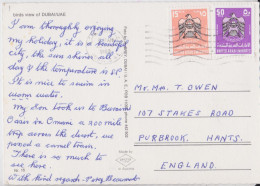 birds view of DUBAI/UAE
I am thoroughly enjoying
my holiday, it is a beautiful
city, the sun shines all
day & the temperature is 85°
It is nice to swim in
warm water.
My Son took us to Buraimi
Oasis in Oman a 200 mile
trip across the desert, we
passed a camel train.
There is so much to
see here.
With kind regards
15
50
UNITED ARAB EMIRATES
Mr. M A. T. OWEN
107 STAKES ROAD
PURBROOK, HANTS.
ENGLAND.